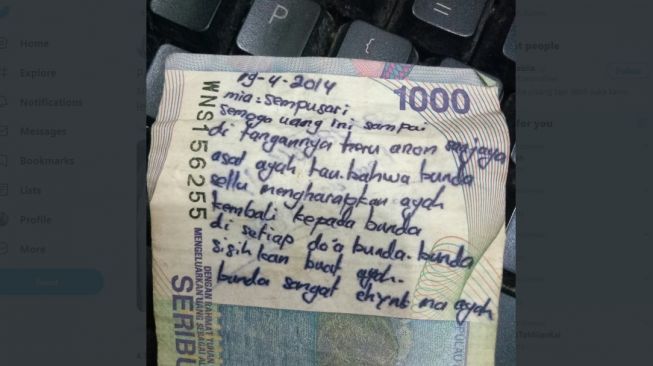 Home
Explore
Notifications
Messages
Bookmarks
Lists
Profile
More
people
for you
{
=
19-4-2014
1000
mia: sempusari
semoga uang ini sampai
di tangannya heru anon sanjaya
asal ayah tau. bahwa bunda
sellu mengharapkan ayah
kembali kepada bunda
di setiap do'a bunda. bunda
sisihkan buat ayah.
bunda sangat
ayah
WNS156255
DENGAN RAHMAT TUHAN
MENGELUARKAN UANG SEBAGAI AL
SERIBU